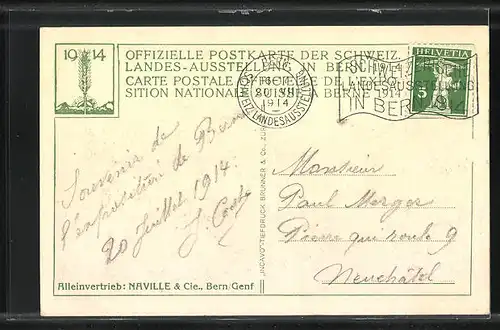 1914
OFFIZIELLE POSTKARTE DER SCHWEIZ.
LANDES-AUSSTELLUNG IN BERN 1914
CARTE POSTALE OFFICIELLE DE L'EXPO-
SITION NATIONALE SUISSE A BERNE 1914
BERN
20.VII
1914
LANDESAUSSTELLUNG
SCHWEIZ.
LANDESAUSSTELLUNG
IN BERN 1914
HELVETIA
5
Souvenir de
l'exposition de Berne
20 Juillet 1914.
Monsieur
Paul Merger
Pierre qui roule 9
Neuchâtel
"INCAVO"-TIEFDRUCK BRUNNER & Co.
Alleinvertrieb: NAVILLE & Cie., Bern/Genf